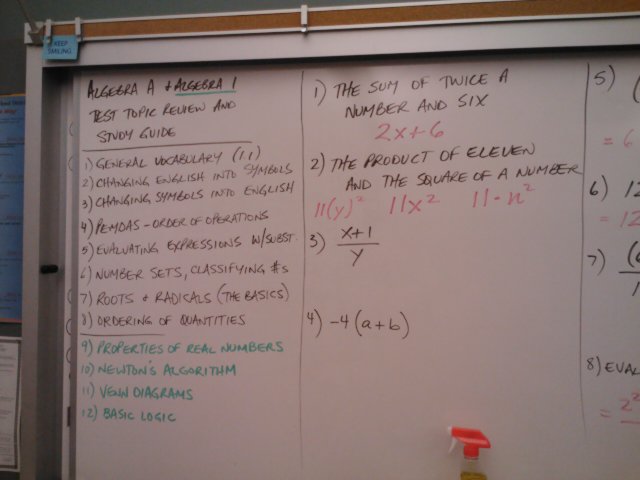 KEEP
SMILING
ALGEBRA A & ALGEBRA 1
TEST TOPIC REVIEW AND
STUDY GUIDE
1) GENERAL VOCABULARY (1.1)
2) CHANGING ENGLISH INTO SYMBOLS
3) CHANGING SYMBOLS INTO ENGLISH
4) PEMDAS - ORDER OF OPERATIONS
5) EVALUATING EXPRESSIONS W/SUBST.
6) NUMBER SETS, CLASSIFYING #s
7) ROOTS & RADICALS (THE BASICS)
8) ORDERING OF QUANTITIES
9) PROPERTIES OF REAL NUMBERS
10) NEWTON'S ALGORITHM
11) VENN DIAGRAMS
12) BASIC LOGIC
1) THE SUM OF TWICE A
NUMBER AND SIX
2x+6
2) THE PRODUCT OF ELEVEN
AND THE SQUARE OF A NUMBER
11(y)² 11x² 11·n²
3) x+1
y
4) -4(a+b)
5) (
= 6
6) 12
= 12
7) (6
8) EVAL
= 2²